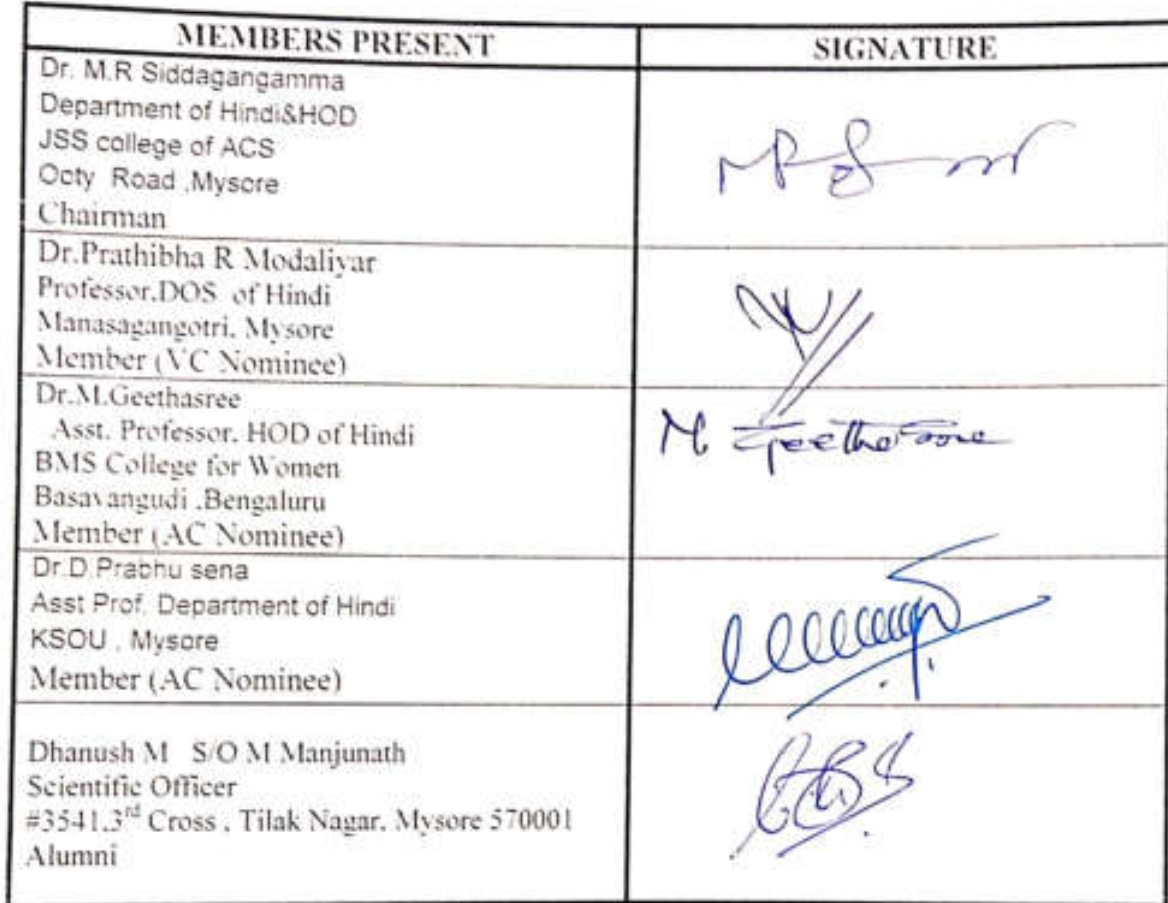 MEMBERS PRESENT
SIGNATURE
Dr. M.R Siddagangamma
Department of Hindi&HOD
JSS college of ACS
Ooty Road ,Mysore
Chairman
Dr.Prathibha R Modaliyar
Professor.DOS of Hindi
Manasagangotri. Mysore
Member (VC Nominee)
Dr.M.Geethasree
Asst. Professor. HOD of Hindi
BMS College for Women
Basavangudi .Bengaluru
Member (AC Nominee)
M Geetha
Dr.D.Prabhu sena
Asst Prof. Department of Hindi
KSOU , Mysore
Member (AC Nominee)
Dhanush M S/O M Manjunath
Scientific Officer
#3541,3rd Cross , Tilak Nagar, Mysore 570001
Alumni